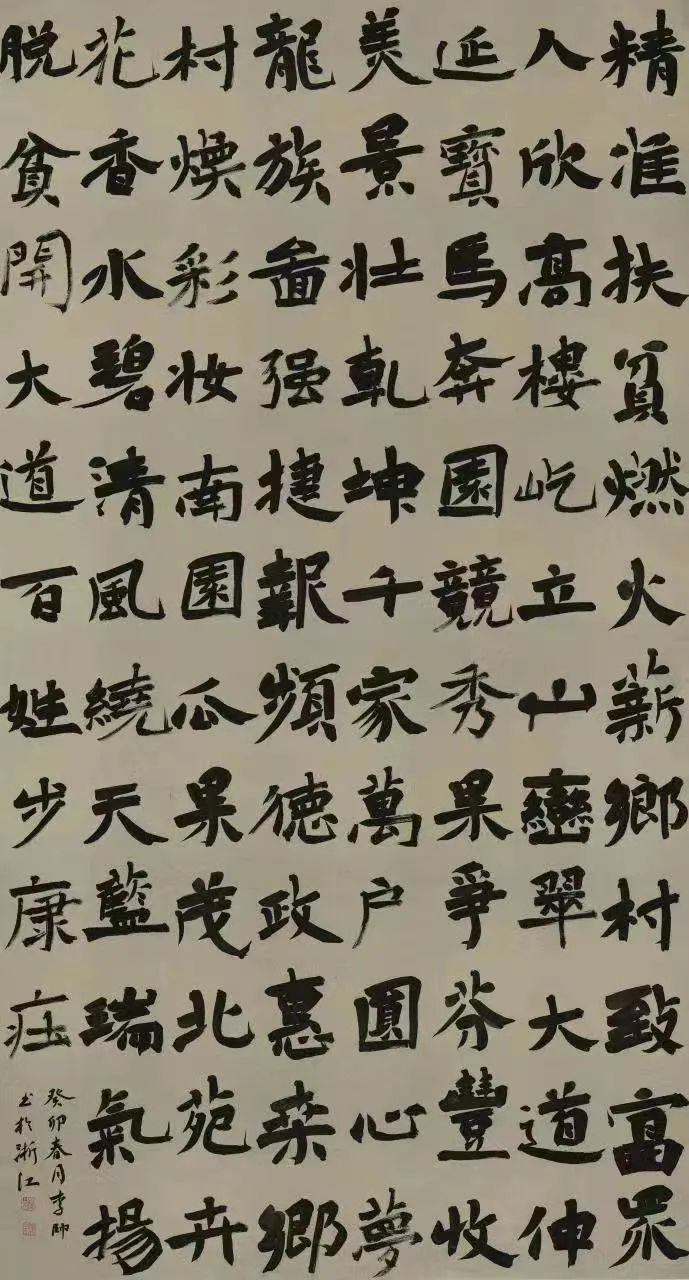 精准扶貧燃火薪鄉村致富眾
人欣高樓屹立山巒翠大道伸
延寶馬奔園競秀果爭芬豐收
美景壯乾坤千家萬户圓心夢
龍族啚强捷報頻德政惠桒鄉
村燠彩妆南園瓜果茂北苑卉
花香水碧清風繞天藍瑞氣揚
脱貧開大道百姓步康莊
癸卯春月李帥
书於浙江